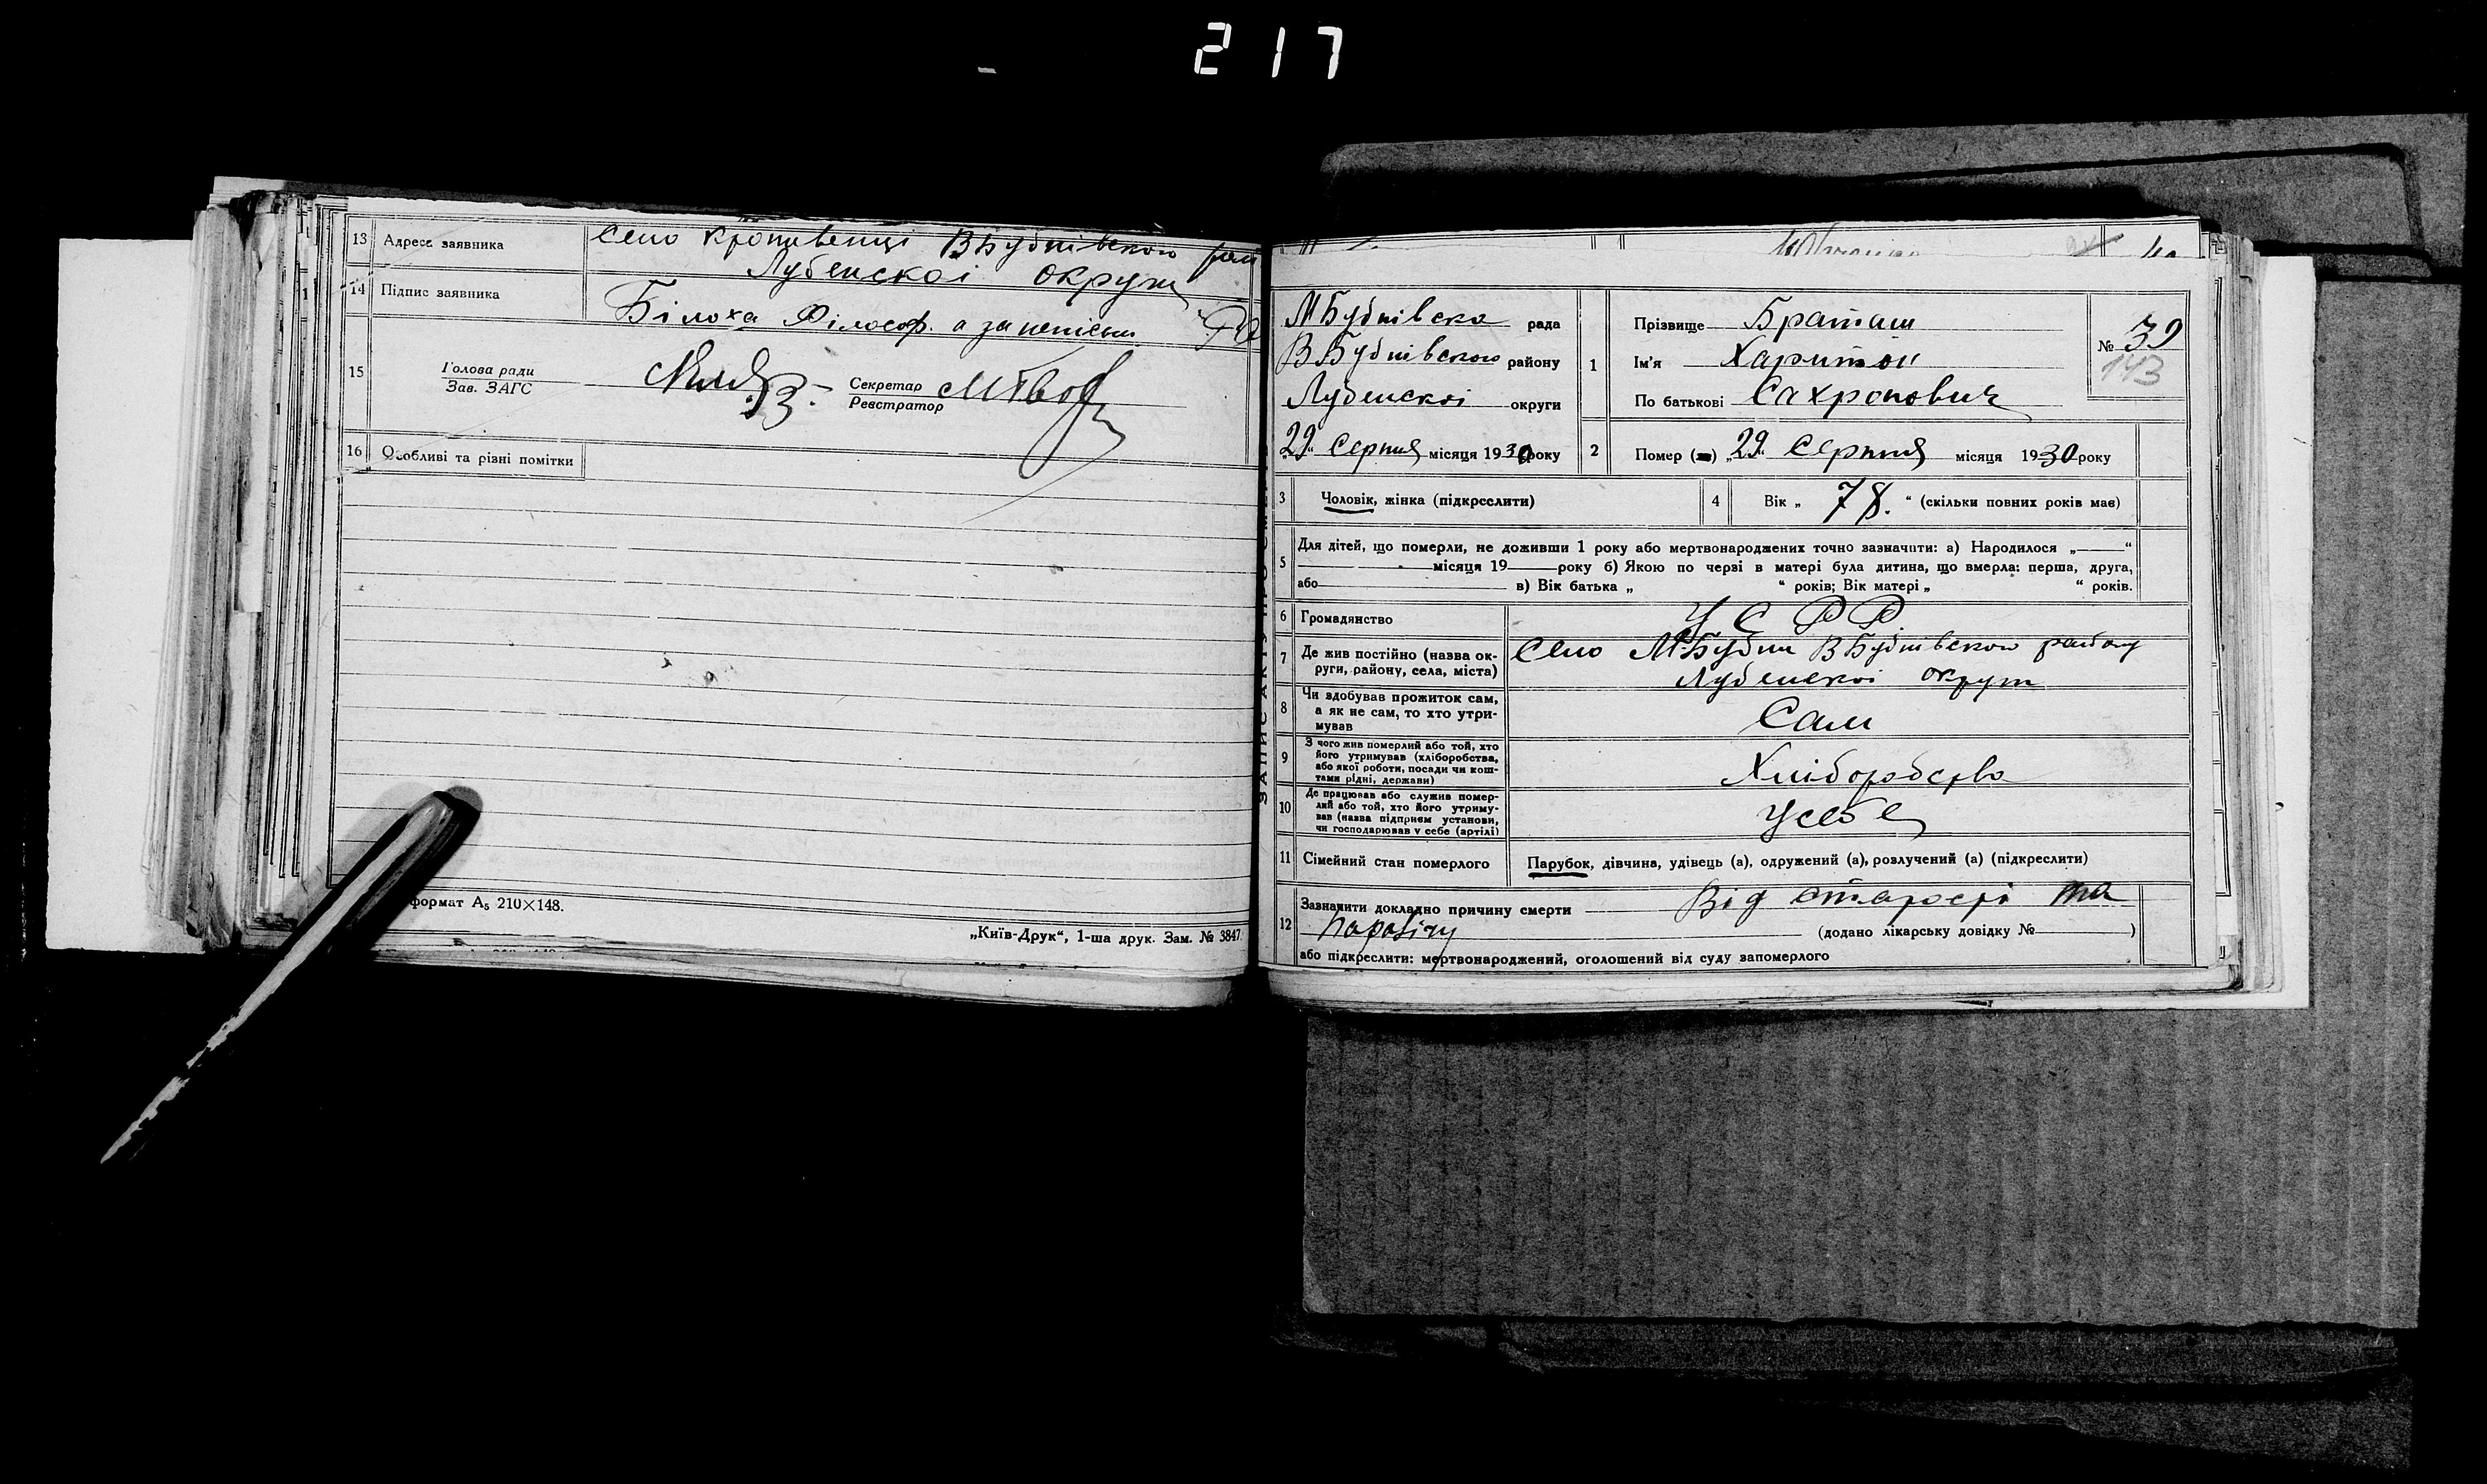 217
13 Адреса заявника Село Кропивенці ВБубнівского рай
Лубенскоі округи
14 Підпис заявника Білоха Філософ. а за неписьм.
15 Голова ради
Зав. ЗАГС
Секретар
Реєстратор
16 Особливі та різні помітки
формат А5 210×148.
„Київ-Друк“, 1-ша друк. Зам. № 3847
МБубнівска рада
ВБубнівского району
Лубенскоі округи
„29“ Серпня місяця 1930 року
1 Прізвище Браташ
Ім'я Харитон
По батькові Сахронович
№ 39
143
2 Помер (ла) „29“ Серпня місяця 1930 року
3 Чоловік, жінка (підкреслити)
4 Вік „ 78. “ (скільки повних років має)
5 Для дітей, що померли, не доживши 1 року або мертвонароджених точно зазначити: а) Народилося „——“
——місяця 19——року б) Якою по черзі в матері була дитина, що вмерла: перша, друга,
або—— в) Вік батька „ “ років; Вік матері „ “ років.
6 Громадянство УСРР
7 Де жив постійно (назва ок-
руги, району, села, міста)
Село МБубни ВБубнівского району
Лубенскоі округи
8 Чи здобував прожиток сам,
а як не сам, то хто утри-
мував
Сам
9 З чого жив померлий або той, хто
його утримував (хліборобства,
або якої роботи, посади чи кош-
тами рідні, держави)
Хліборобство
10 Де працював або служив помер-
лий або той, хто його утриму-
вав (назва підприєм установи,
чи господарював у себе (артілі)
Усебе
11 Сімейний стан померлого Парубок, дівчина, удівець (а), одружений (а), розлучений (а) (підкреслити)
12 Зазначити докладно причину смерти Від старості та
(додано лікарську довідку №——)
або підкреслити: мертвонароджений, оголошений від суду запомерлого